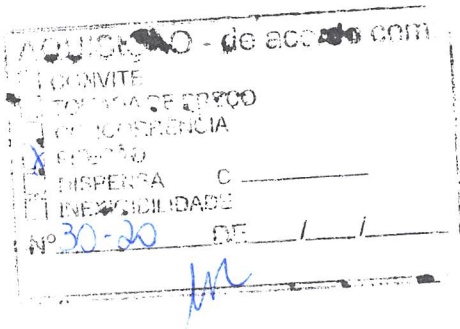 AQUISIÇÃO - de acordo com
CONVITE
TOMADA DE PREÇO
CONCORRÊNCIA
X PREGÃO
DISPENSA C
INEXIGIBILIDADE
Nº 30-20 DE / /